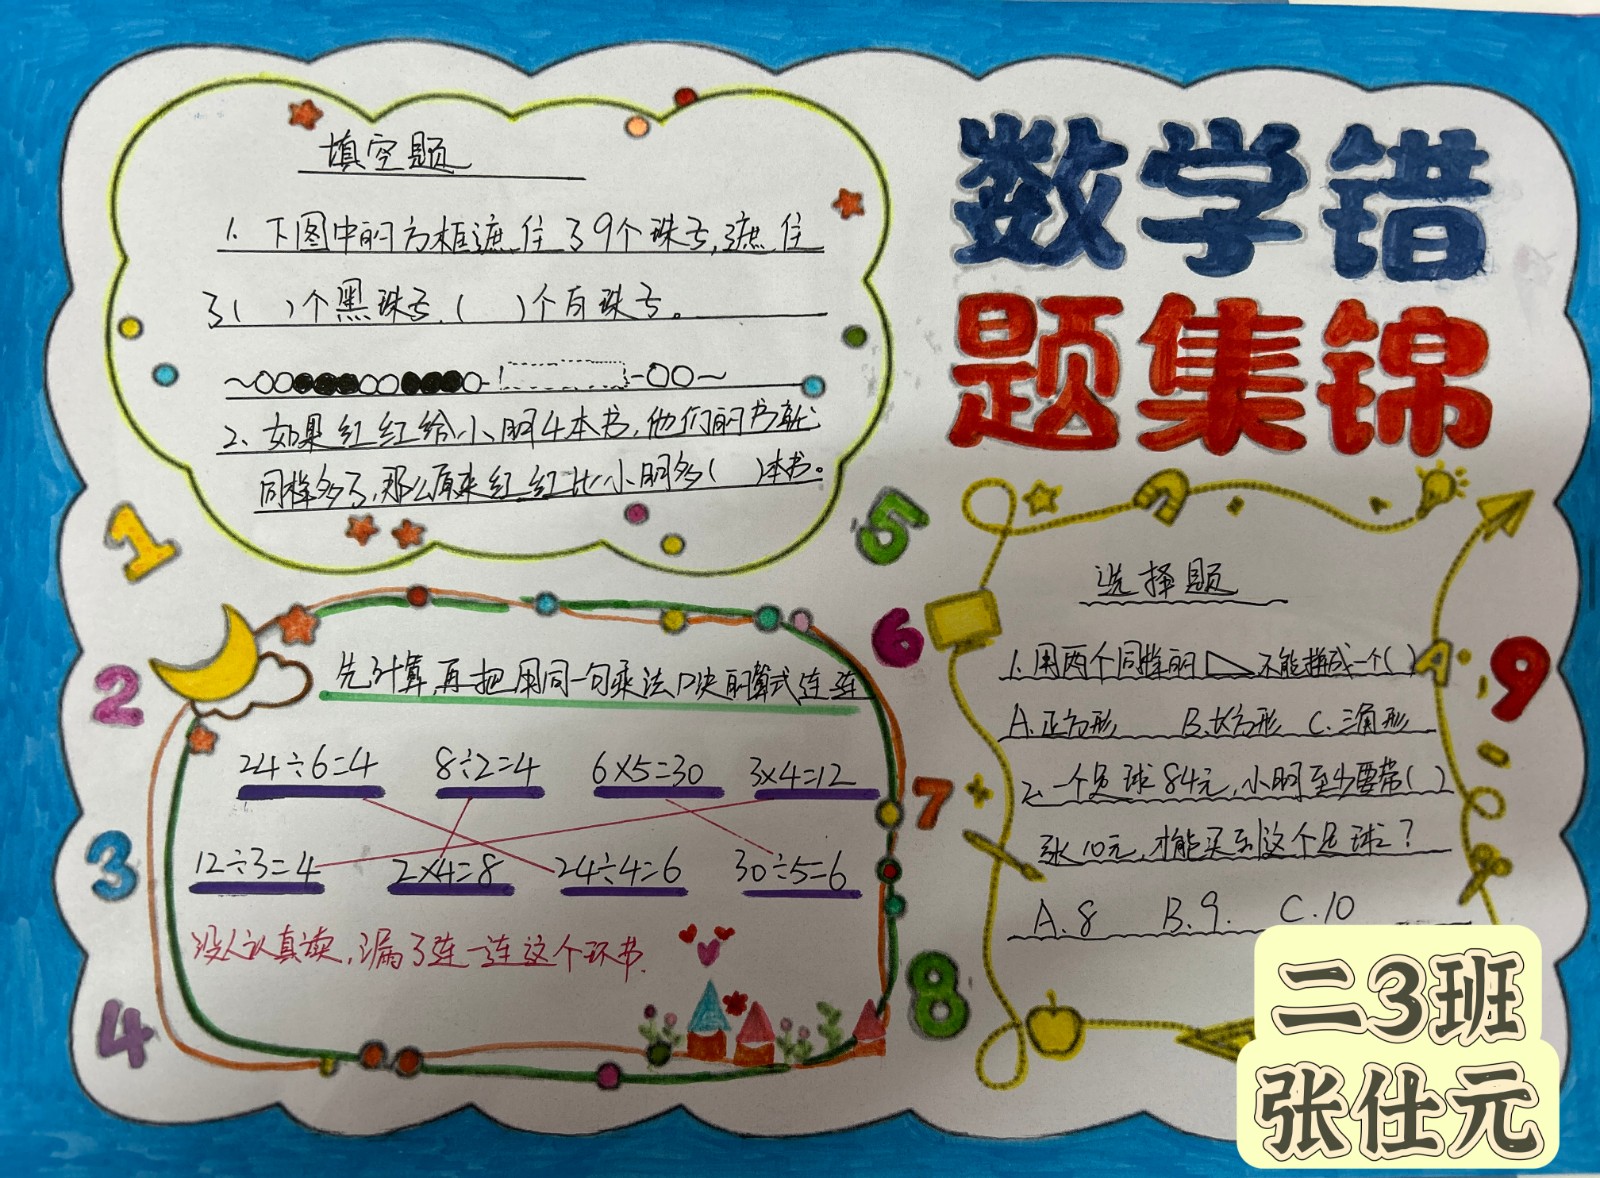 数学错
题集锦
填空题
1. 下图中的方框遮住了9个珠子,遮住
了( )个黑珠子,( )个白珠子。
2. 如果红红给小明4本书,他们的书就
同样多了,那么原来红红比小明多( )本书。
1
2
3
4
先计算,再把用同一句乘法口决的算式连一连
24÷6=4 8÷2=4 6×5=30 3×4=12
12÷3=4 2×4=8 24÷4=6 30÷5=6
没认真读,漏了连一连这个环书.
5
6
7
8
9
选择题
1. 用两个同样的 不能拼成一个( )
A.正方形 B.长方形 C.三角形
2. 一个足球84元,小明至少要带( )
张10元,才能买到这个足球?
A.8 B.9. C.10
A
二3班
张仕元